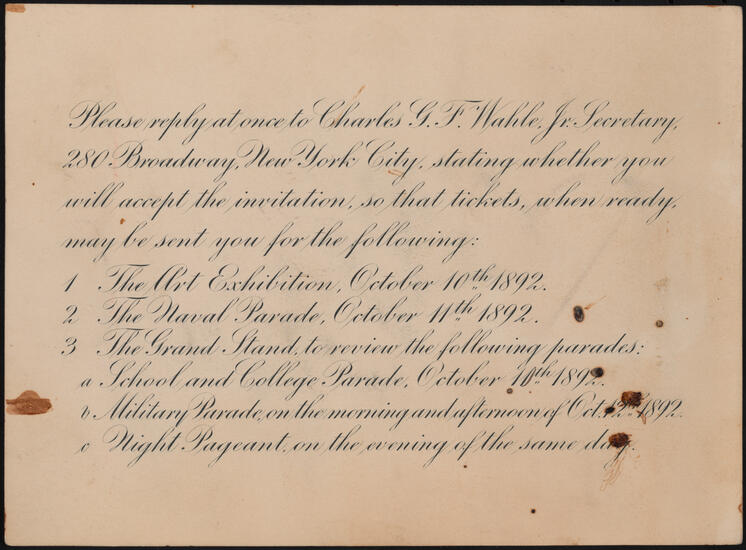 Please reply at once to Charles G. F. Wahle, Jr. Secretary,
280 Broadway, New York City, stating whether you
will accept the invitation, so that tickets, when ready,
may be sent you for the following:
1 The Art Exhibition, October 10th 1892.
2 The Naval Parade, October 11th 1892.
3 The Grand Stand, to review the following parades:
a School and College Parade, October 10th 1892.
b Military Parade, on the morning and afternoon of Oct. 12th 1892.
c Night Pageant, on the evening of the same day.